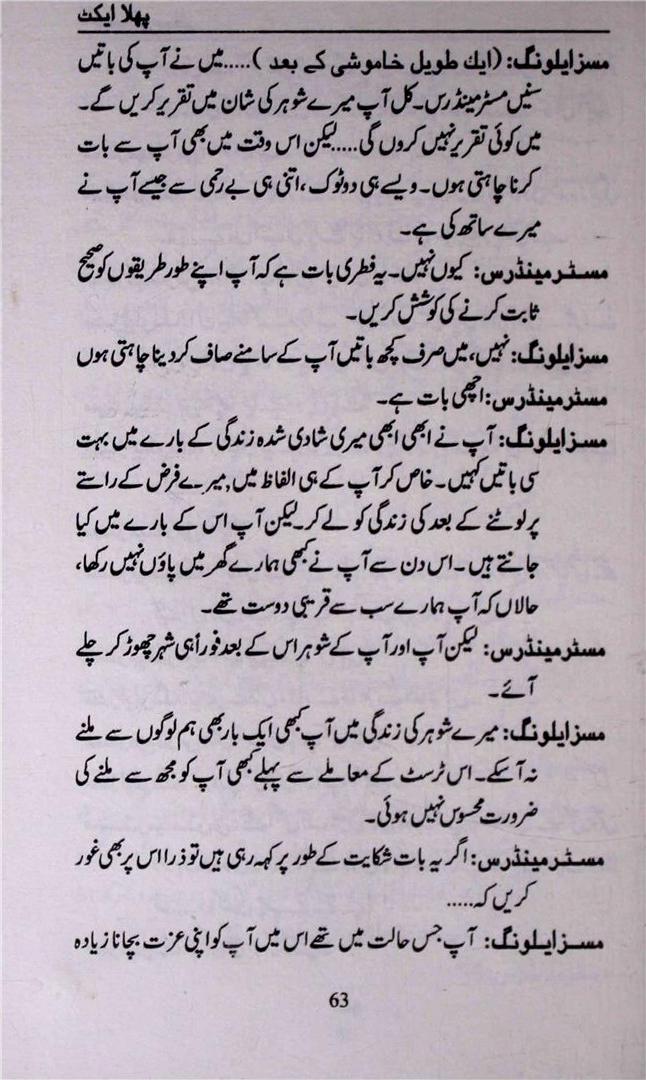 پہلا ایکٹ
مسز ایلونگ: (ایك طویل خاموشی کے بعد ).....میں نے آپ کی باتیں
سنیں مسٹر مینڈرس۔ کل آپ میرے شوہر کی شان میں تقریر کریں گے۔
میں کوئی تقریر نہیں کروں گی.....لیکن اس وقت میں بھی آپ سے بات
کرنا چاہتی ہوں۔ ویسے ہی دو ٹوک ،اتنی ہی بے رحمی سے جیسے آپ نے
میرے ساتھ کی ہے۔
مسٹر مینڈرس: کیوں نہیں۔ یہ فطری بات ہے کہ آپ اپنے طور طریقوں کو صحیح
ثابت کرنے کی کوشش کریں۔
مسز ایلونگ: نہیں، میں صرف کچھ باتیں آپ کے سامنے صاف کر دینا چاہتی ہوں
مسٹر مینڈرس: اچھی بات ہے۔
مسز ایلونگ: آپ نے ابھی ابھی میری شادی شدہ زندگی کے بارے میں بہت
سی باتیں کہیں۔ خاص کر آپ کے ہی الفاظ میں, میرے فرض کے راستے
پر لوٹنے کے بعد کی زندگی کو لے کر۔ لیکن آپ اس کے بارے میں کیا
جانتے ہیں۔ اس دن سے آپ نے کبھی ہمارے گھر میں پاؤں نہیں رکھا،
حالاں کہ آپ ہمارے سب سے قریبی دوست تھے۔
مسٹر مینڈرس: لیکن آپ اور آپ کے شوہر اس کے بعد فوراً ہی شہر چھوڑ کر چلے
آئے۔
مسز ایلونگ: میرے شوہر کی زندگی میں آپ کبھی ایک بار بھی ہم لوگوں سے ملنے
نہ آسکے۔ اس ٹرسٹ کے معاملے سے پہلے کبھی آپ کو مجھ سے ملنے کی
ضرورت محسوس نہیں ہوئی۔
مسٹر مینڈرس: اگر یہ بات شکایت کے طور پر کہہ رہی ہیں تو ذرا اس پر بھی غور
کریں کہ.....
مسز ایلونگ: آپ جس حالت میں تھے اس میں آپ کو اپنی عزت بچانا زیادہ
63